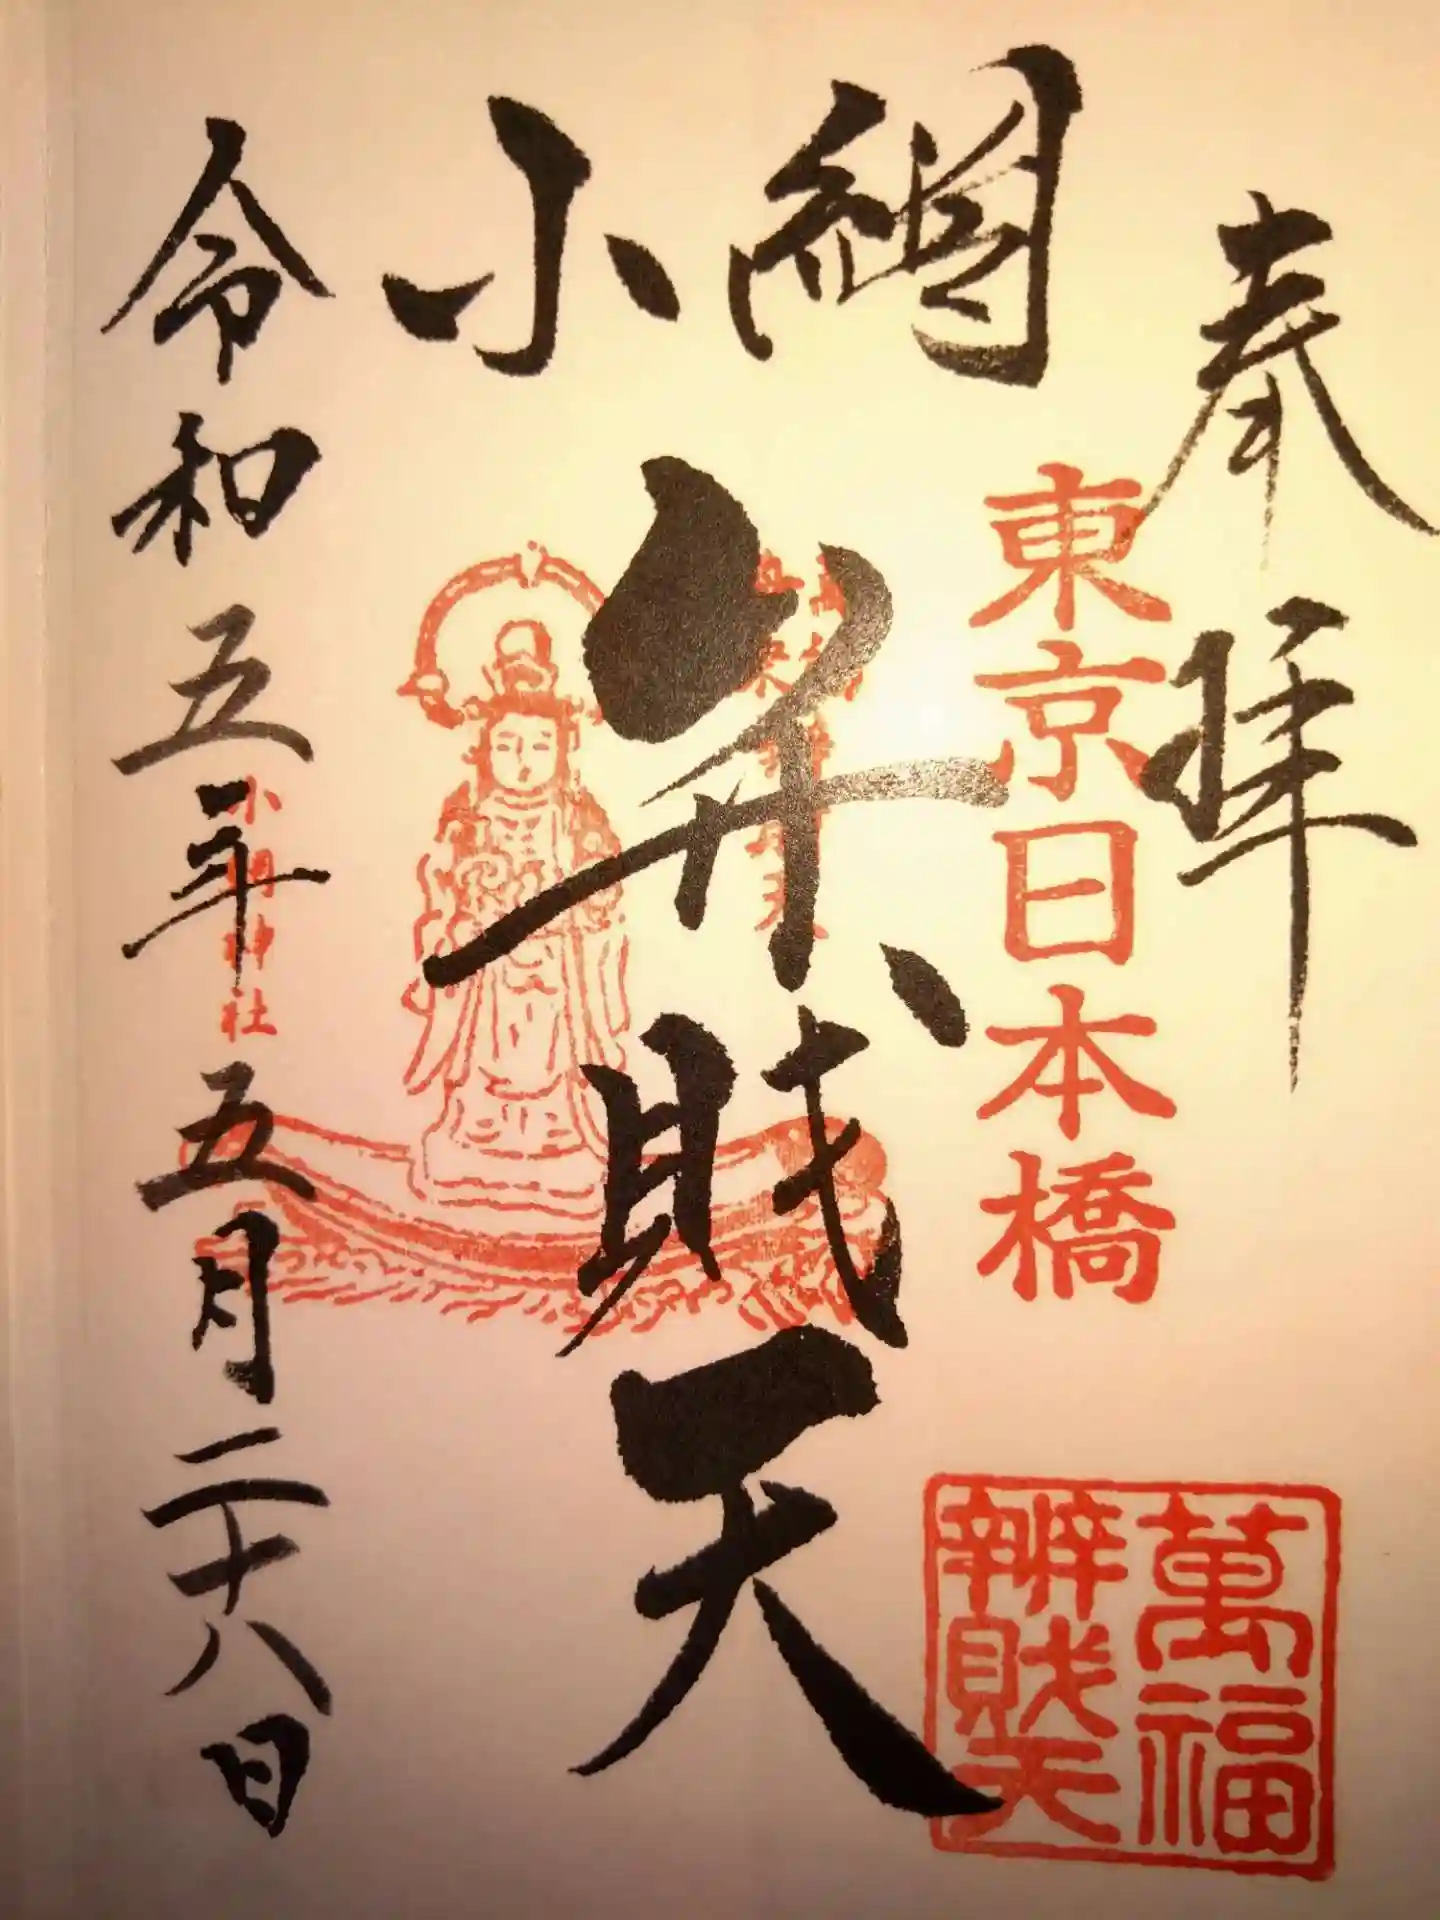 奉拝
東京日本橋
萬福
辨財天
小網
弁財天
小網神社
令和五年五月二十八日